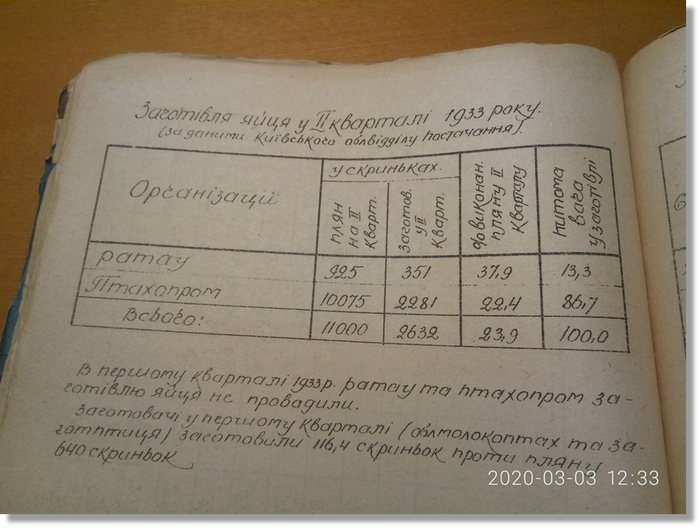 Заготівля яйця у II кварталі 1933 року.
(за даними Київського облвідділу постачання).
Організації
у скриньках.
плян на II кварт.
заготов. у II кварт.
% виконан. пляну II кварталу
питома вага у заготівлі
ратау 925 351 37,9 13,3
Птахопром 10075 2281 22,4 86,7
Всього: 11000 2632 23,9 100,0
В першому кварталі 1933р. ратау та птахопром за-
готівлю яйця не провадили.
Заготовачі у першому кварталі (облмолокоптах та за-
готптиця) заготовили 116,4 скриньок проти пляну
640 скриньок
2020-03-03 12:33